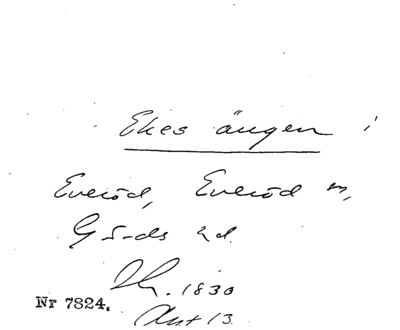 Ekes ängen i
Everöd, Everöd sn,
Gärds hd.
1830
Nr 7824. Akt 13.